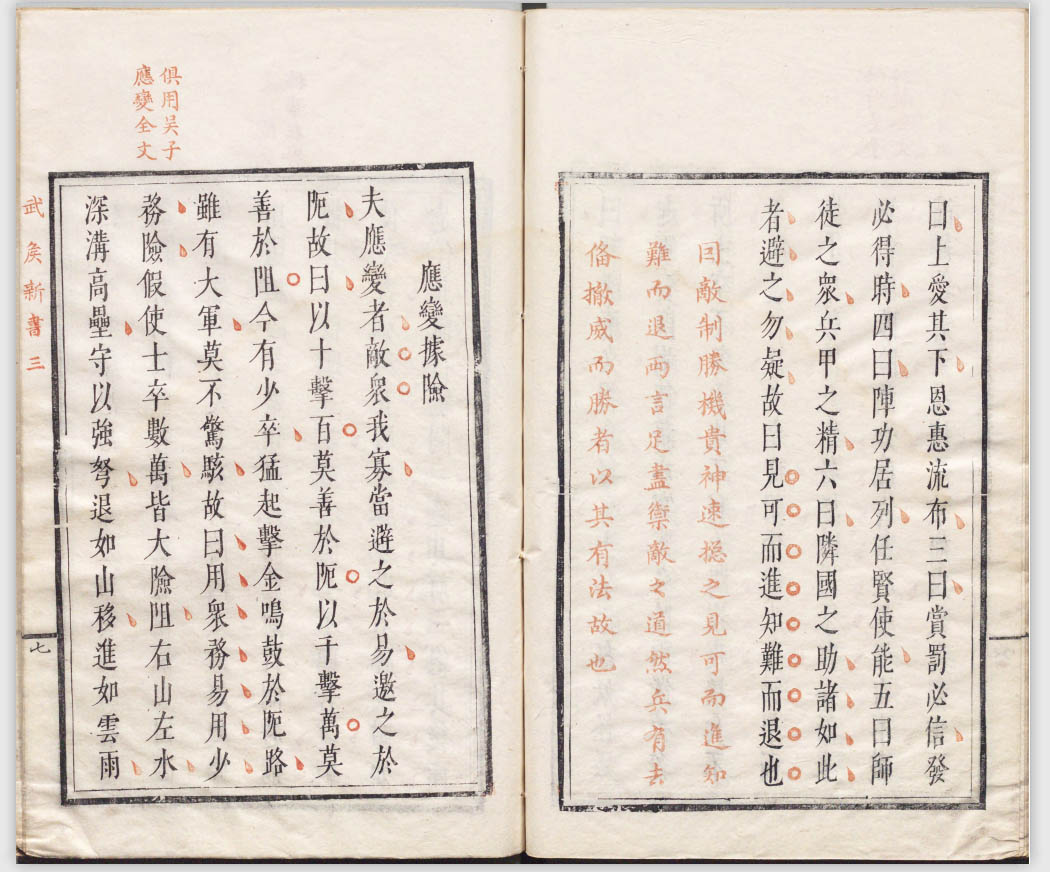 曰上愛其下恩惠流布三曰賞罰必信發
必得時四曰陣功居列任賢使能五曰師
徒之衆兵甲之精六曰隣國之助諸如此
者避之勿疑故曰見可而進知難而退也
因敵制勝機貴神速揔之見可而進知
難而退两言足盡禦敵之道然兵有去
俻撤威而勝者以其有法故也
俱用吴子
應變全文
應變據險
夫應變者敵衆我寡當避之於易邀之於
阨故曰以十擊百莫善於阨以千擊萬莫
善於阻今有少卒猛起擊金鳴鼓於阨路
雖有大軍莫不驚駭故曰用衆務易用少
務險假使士卒數萬皆大險阻右山左水
深溝高壘守以強弩退如山移進如雲雨
武矦新書三
七